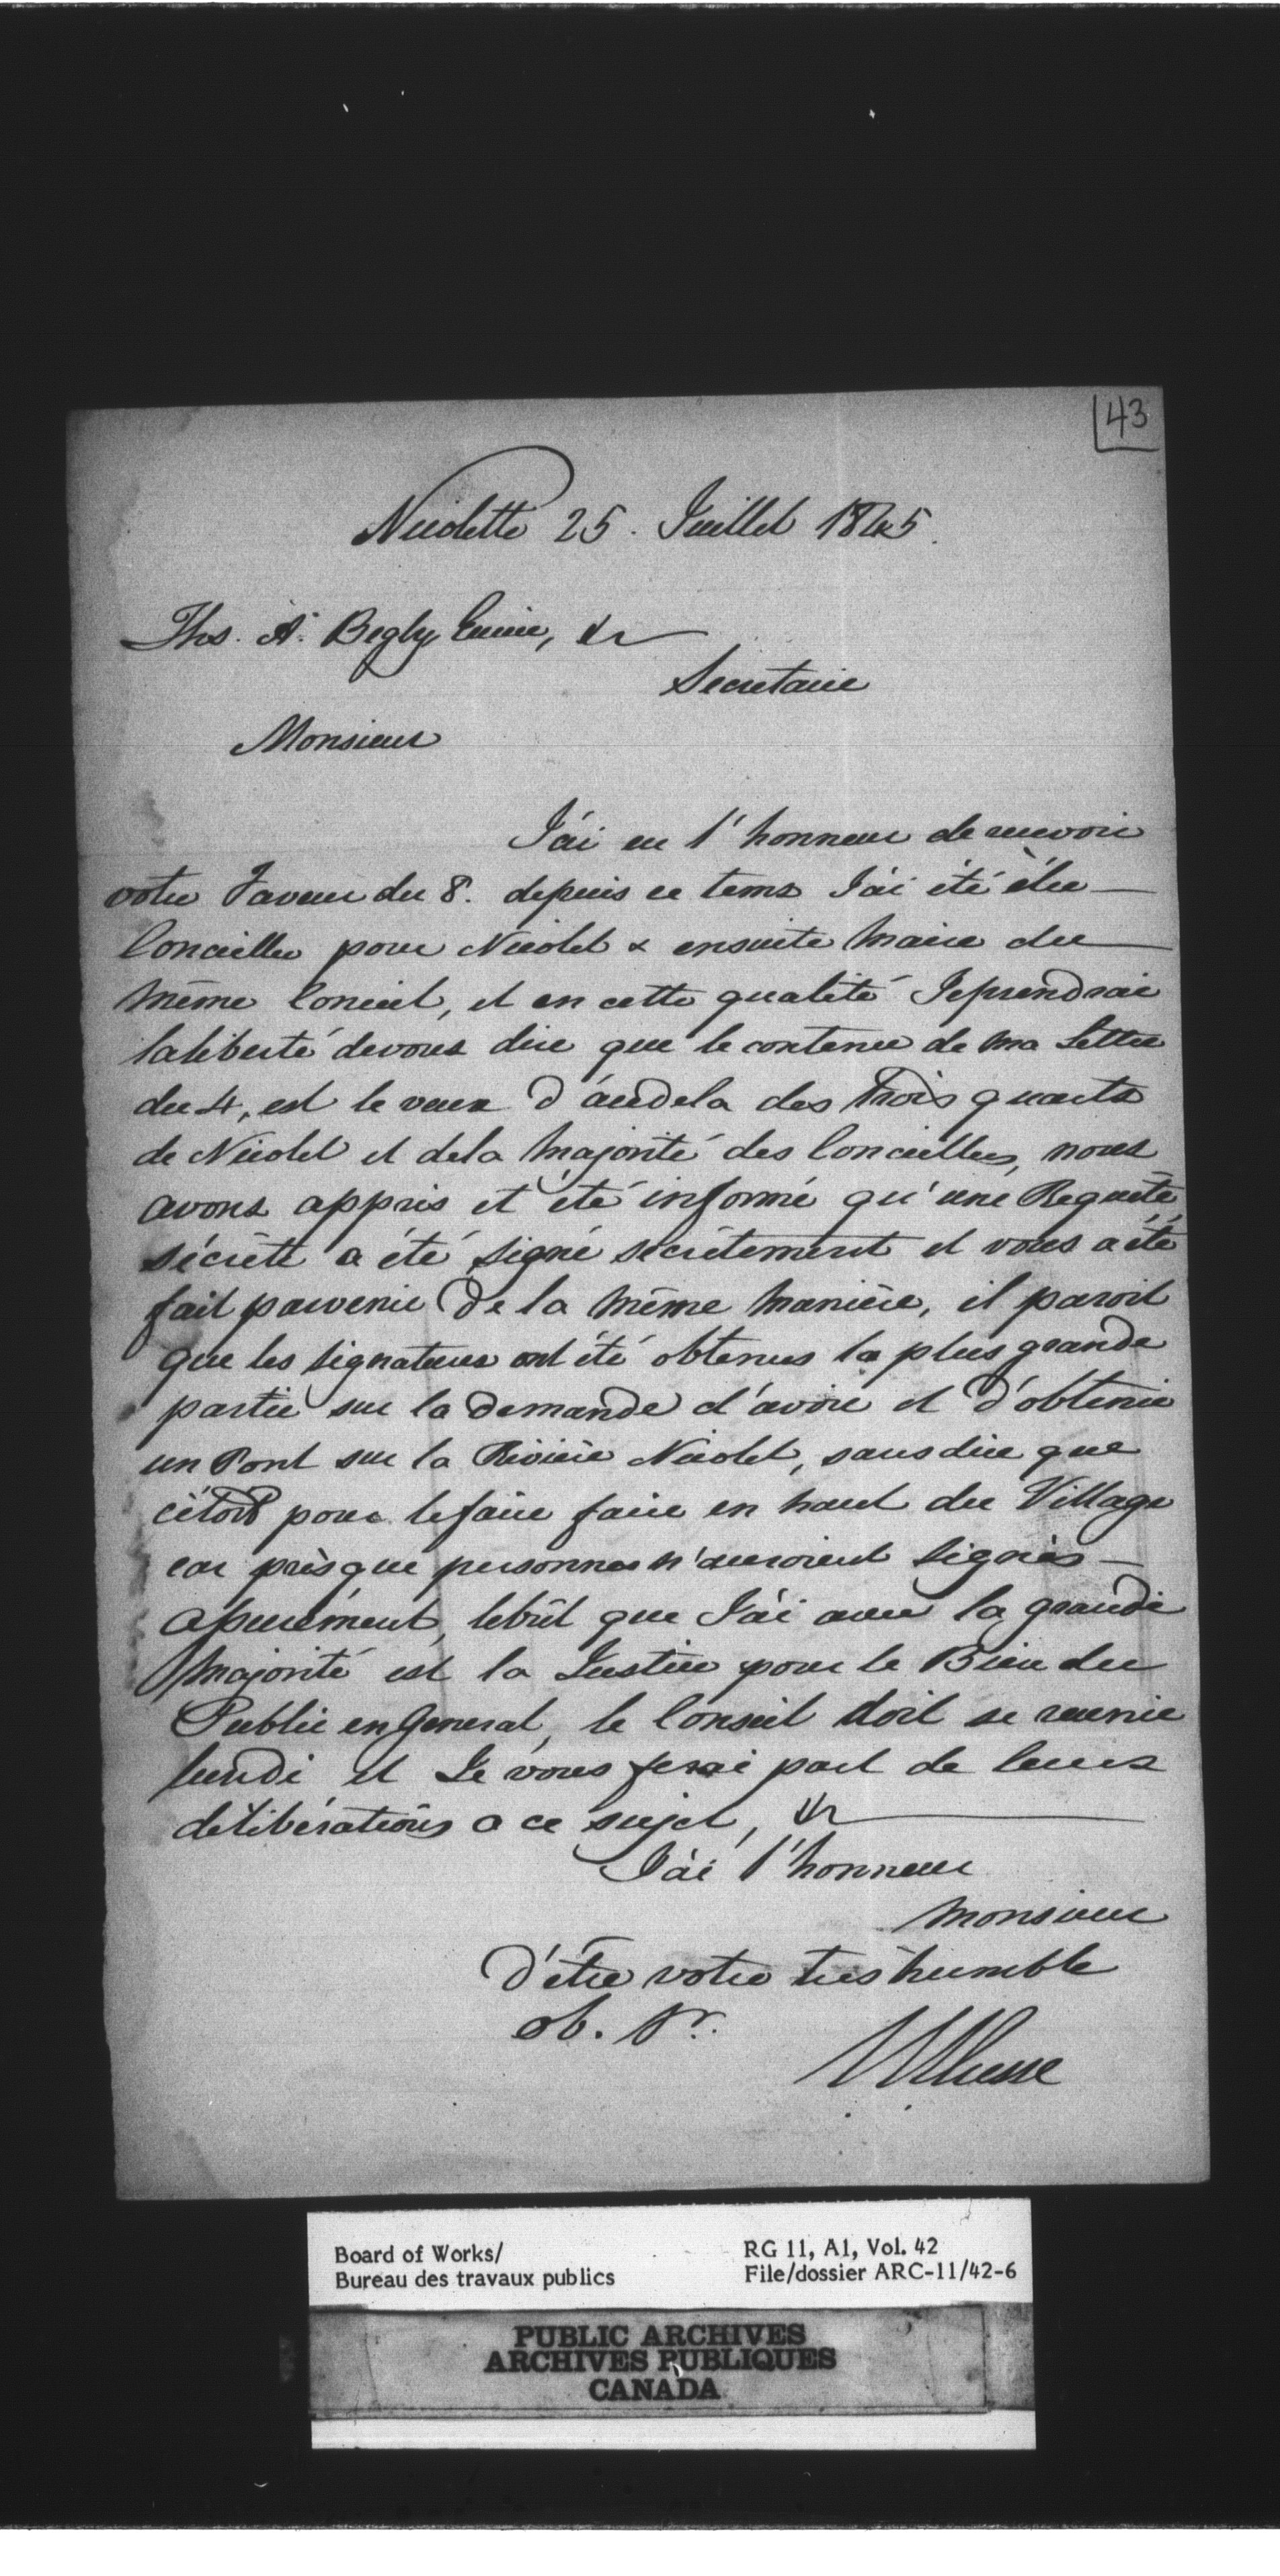 43
Nicolette 25. Juillet 1845.
Ths. A. Begly Ecuier, &c
Secretaire
Monsieur
J'ai eu l'honneur de recevoir
votre Faveur du 8. depuis ce tems J'ai été élu
Conceiller pour Nicolet & ensuite Maire du
Même Conceil, et en cette qualité Je prendrai
la liberté de vous dire que le contenu de ma Lettre
du 4, est le veux d'audela des Trois quarts
de Nicolet et de la Majorité des Conceillers, nous
avons appris et été informé qu'une Requête
sécrète a été signé secrètement et vous a été
fait parvenir De la Même Manière, il paroit
que les signatures ont été obtenus la plus grande
partie sur la Demande d'avoir et D'obtenir
un Pont sur la Rivière Nicolet, sans dire que
c'étoit pour le faire faire en haut du Village
car prèsque personnes n'auroient Signès
apurément, le bût que J'ai avec la grande
Majorité est la Justice pour le Bien du
Public en General, le Conseil doit se reunir
lundi et Je vous ferai part de leurs
délibérations a ce sujet, &c
J'ai l'honneur
Monsieur
D'être votre très humble
ob. Sr.